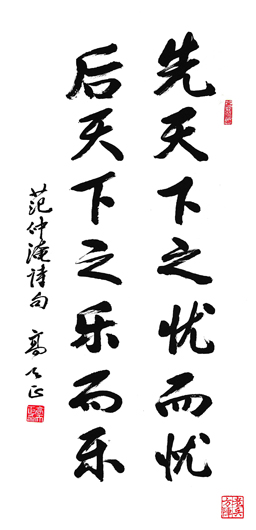 先天下之忧而忧
后天下之乐而乐
范仲淹詩句 高天正